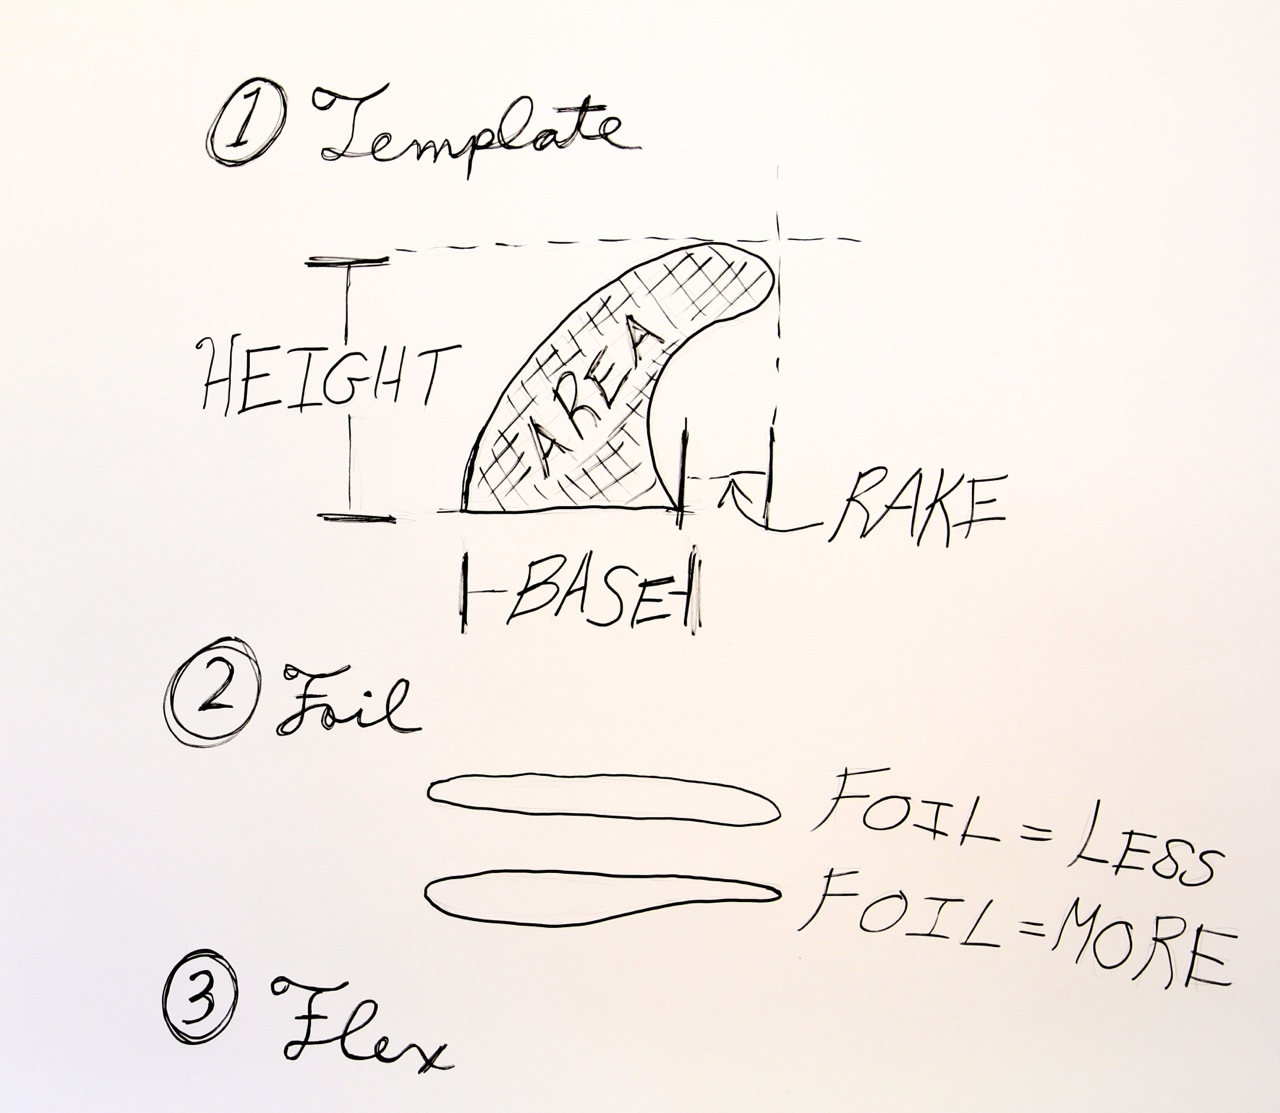 1 Template
HEIGHT
AREA
RAKE
BASE
2 Foil
FOIL = LESS
FOIL = MORE
3 Flex